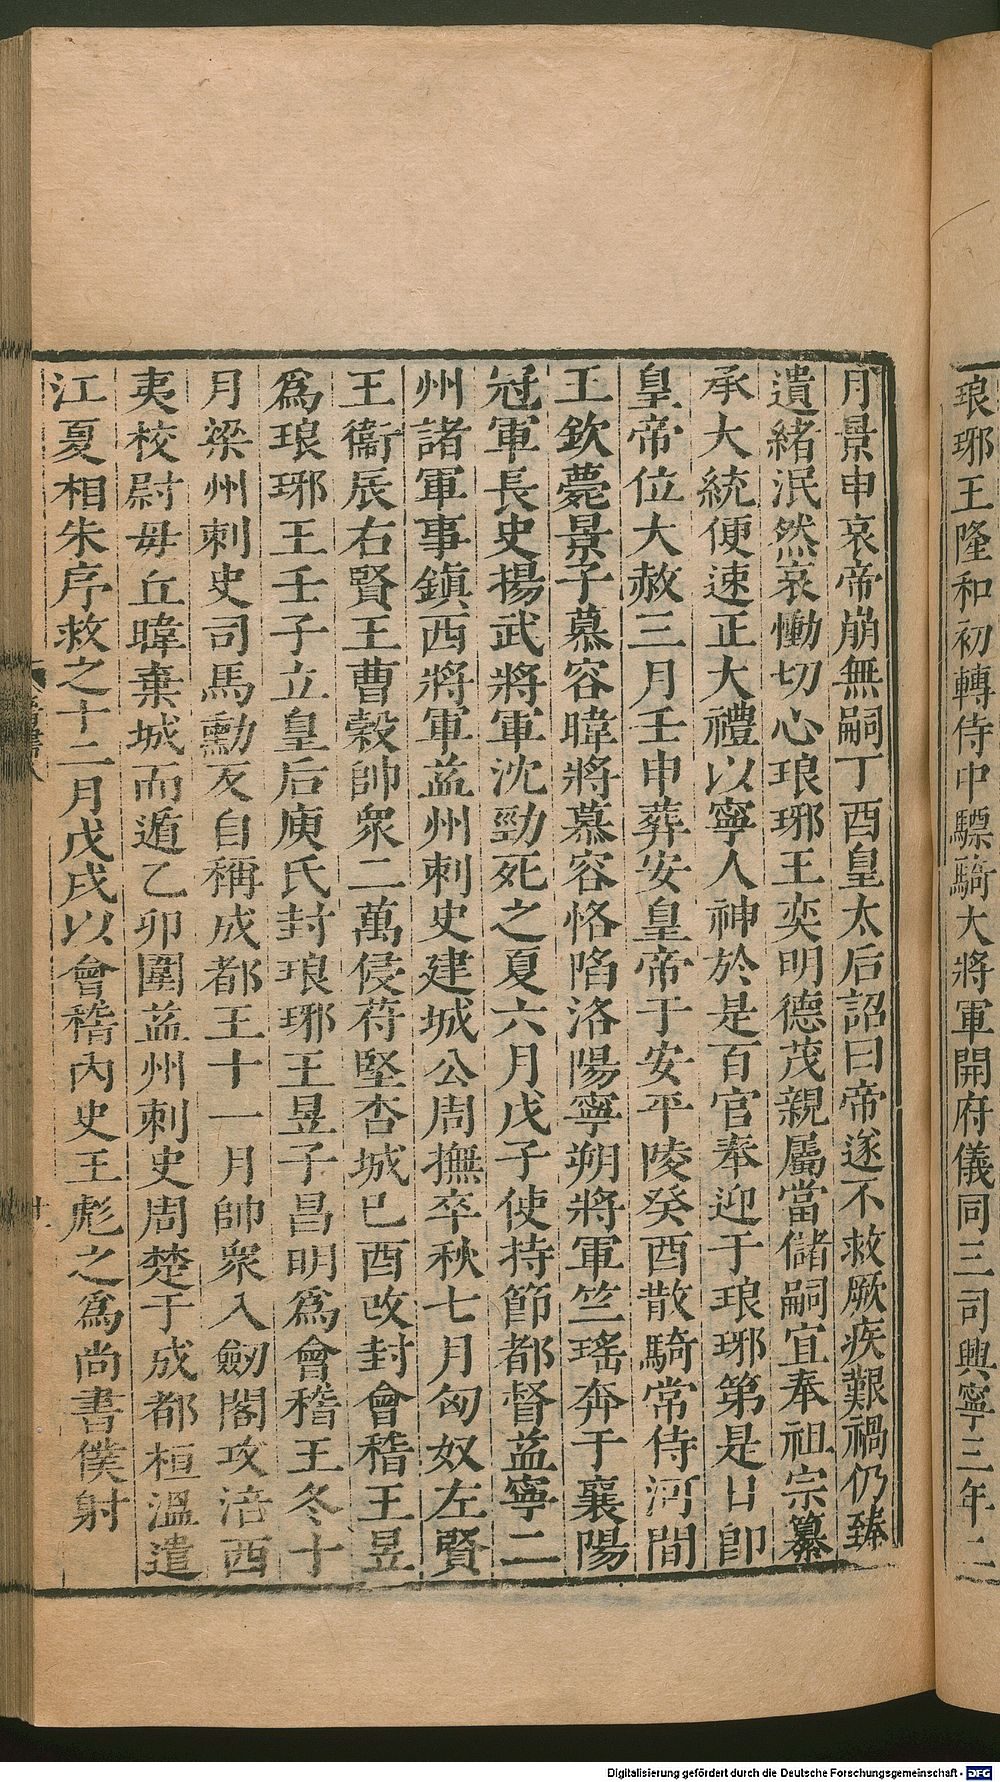 琅琊王隆和初轉侍中驃騎大將軍開府儀同三司興寧三年二
月景申哀帝崩無嗣丁酉皇太后詔曰帝遂不救厥疾艱禍仍臻
遺緒泯然哀慟切心琅琊王奕明德茂親屬當儲嗣宜奉祖宗纂
承大統便速正大禮以寧人神於是百官奉迎于琅琊第是日即
皇帝位大赦三月壬申葬安皇帝于安平陵癸酉散騎常侍河間
王欽薨景子慕容暐將慕容恪陷洛陽寧朔將軍竺瑤奔于襄陽
冠軍長史揚武將軍沈勁死之夏六月戊子使持節都督益寧二
州諸軍事鎮西將軍益州刺史建城公周撫卒秋七月匈奴左賢
王衞辰右賢王曹穀帥衆二萬侵苻堅杏城已酉改封會稽王昱
爲琅琊王壬子立皇后庾氏封琅琊王昱子昌明爲會稽王冬十
月梁州刺史司馬勳反自稱成都王十一月帥衆入劒閣攻涪西
夷校尉毋丘暐棄城而遁乙卯圍益州刺史周楚于成都桓溫遣
江夏相朱序救之十二月戊戌以會稽內史王彪之爲尚書僕射
晉書八
廿一
Digitalisierung gefördert durch die Deutsche Forschungsgemeinschaft - DFG